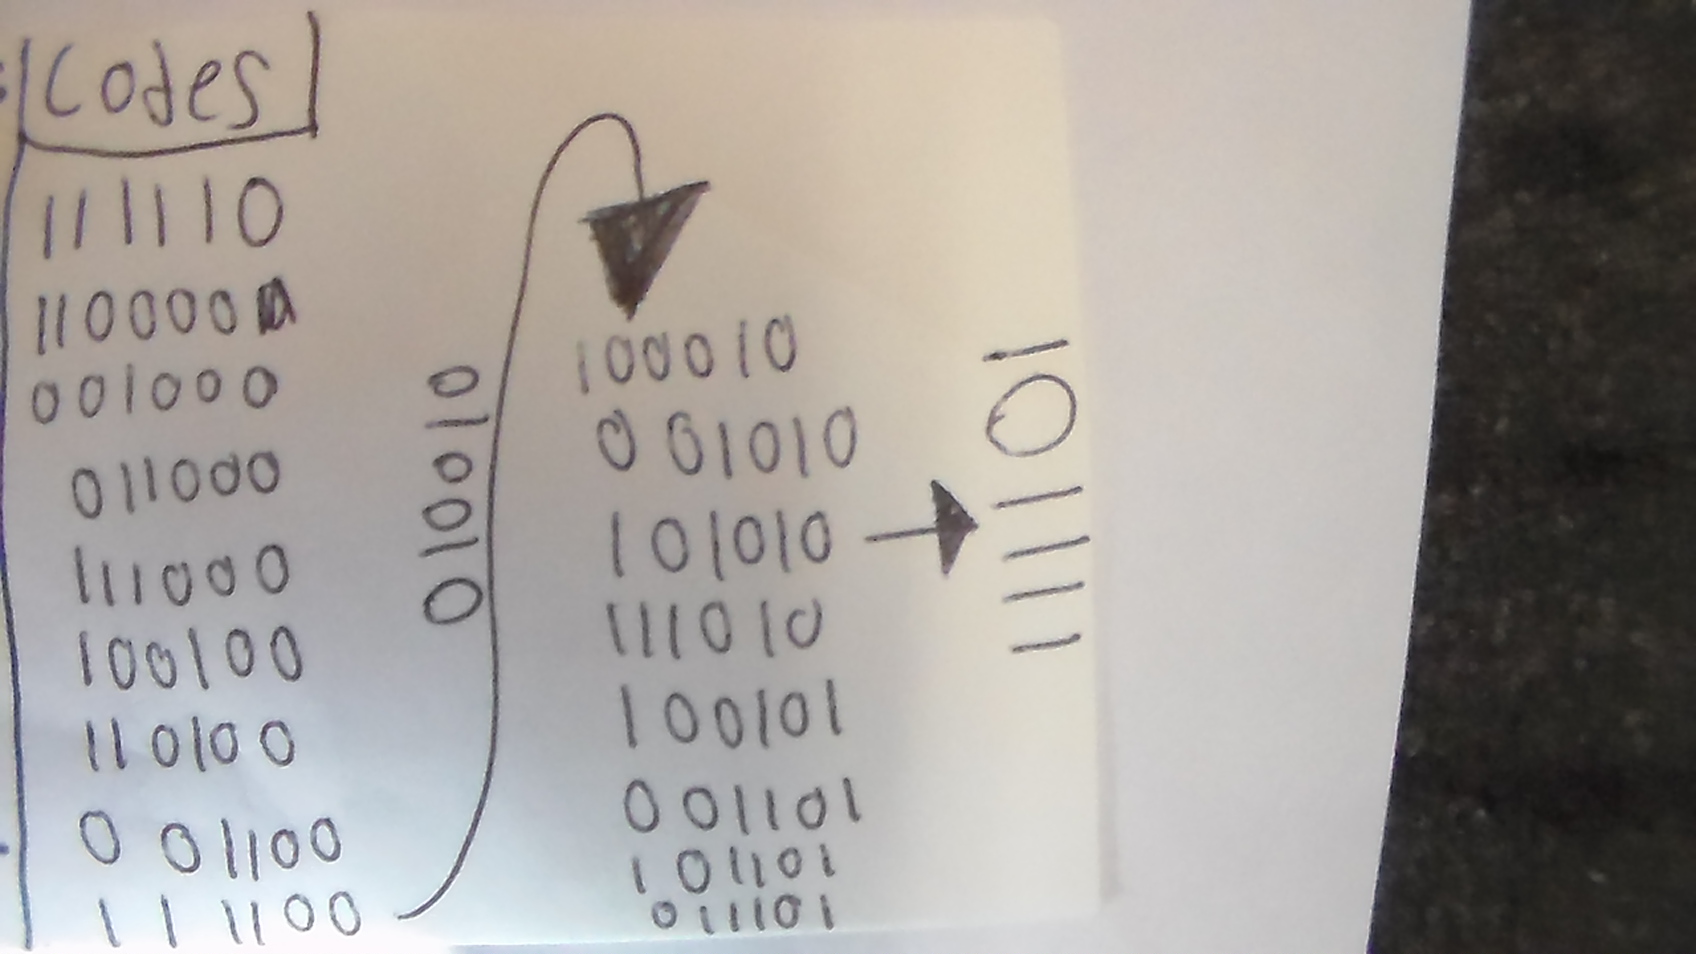 Codes
111110
110000
001000
011000
111000
100100
110100
001100
111100
010010
100010
001010
101010
111010
100101
001101
101101
011101
111101